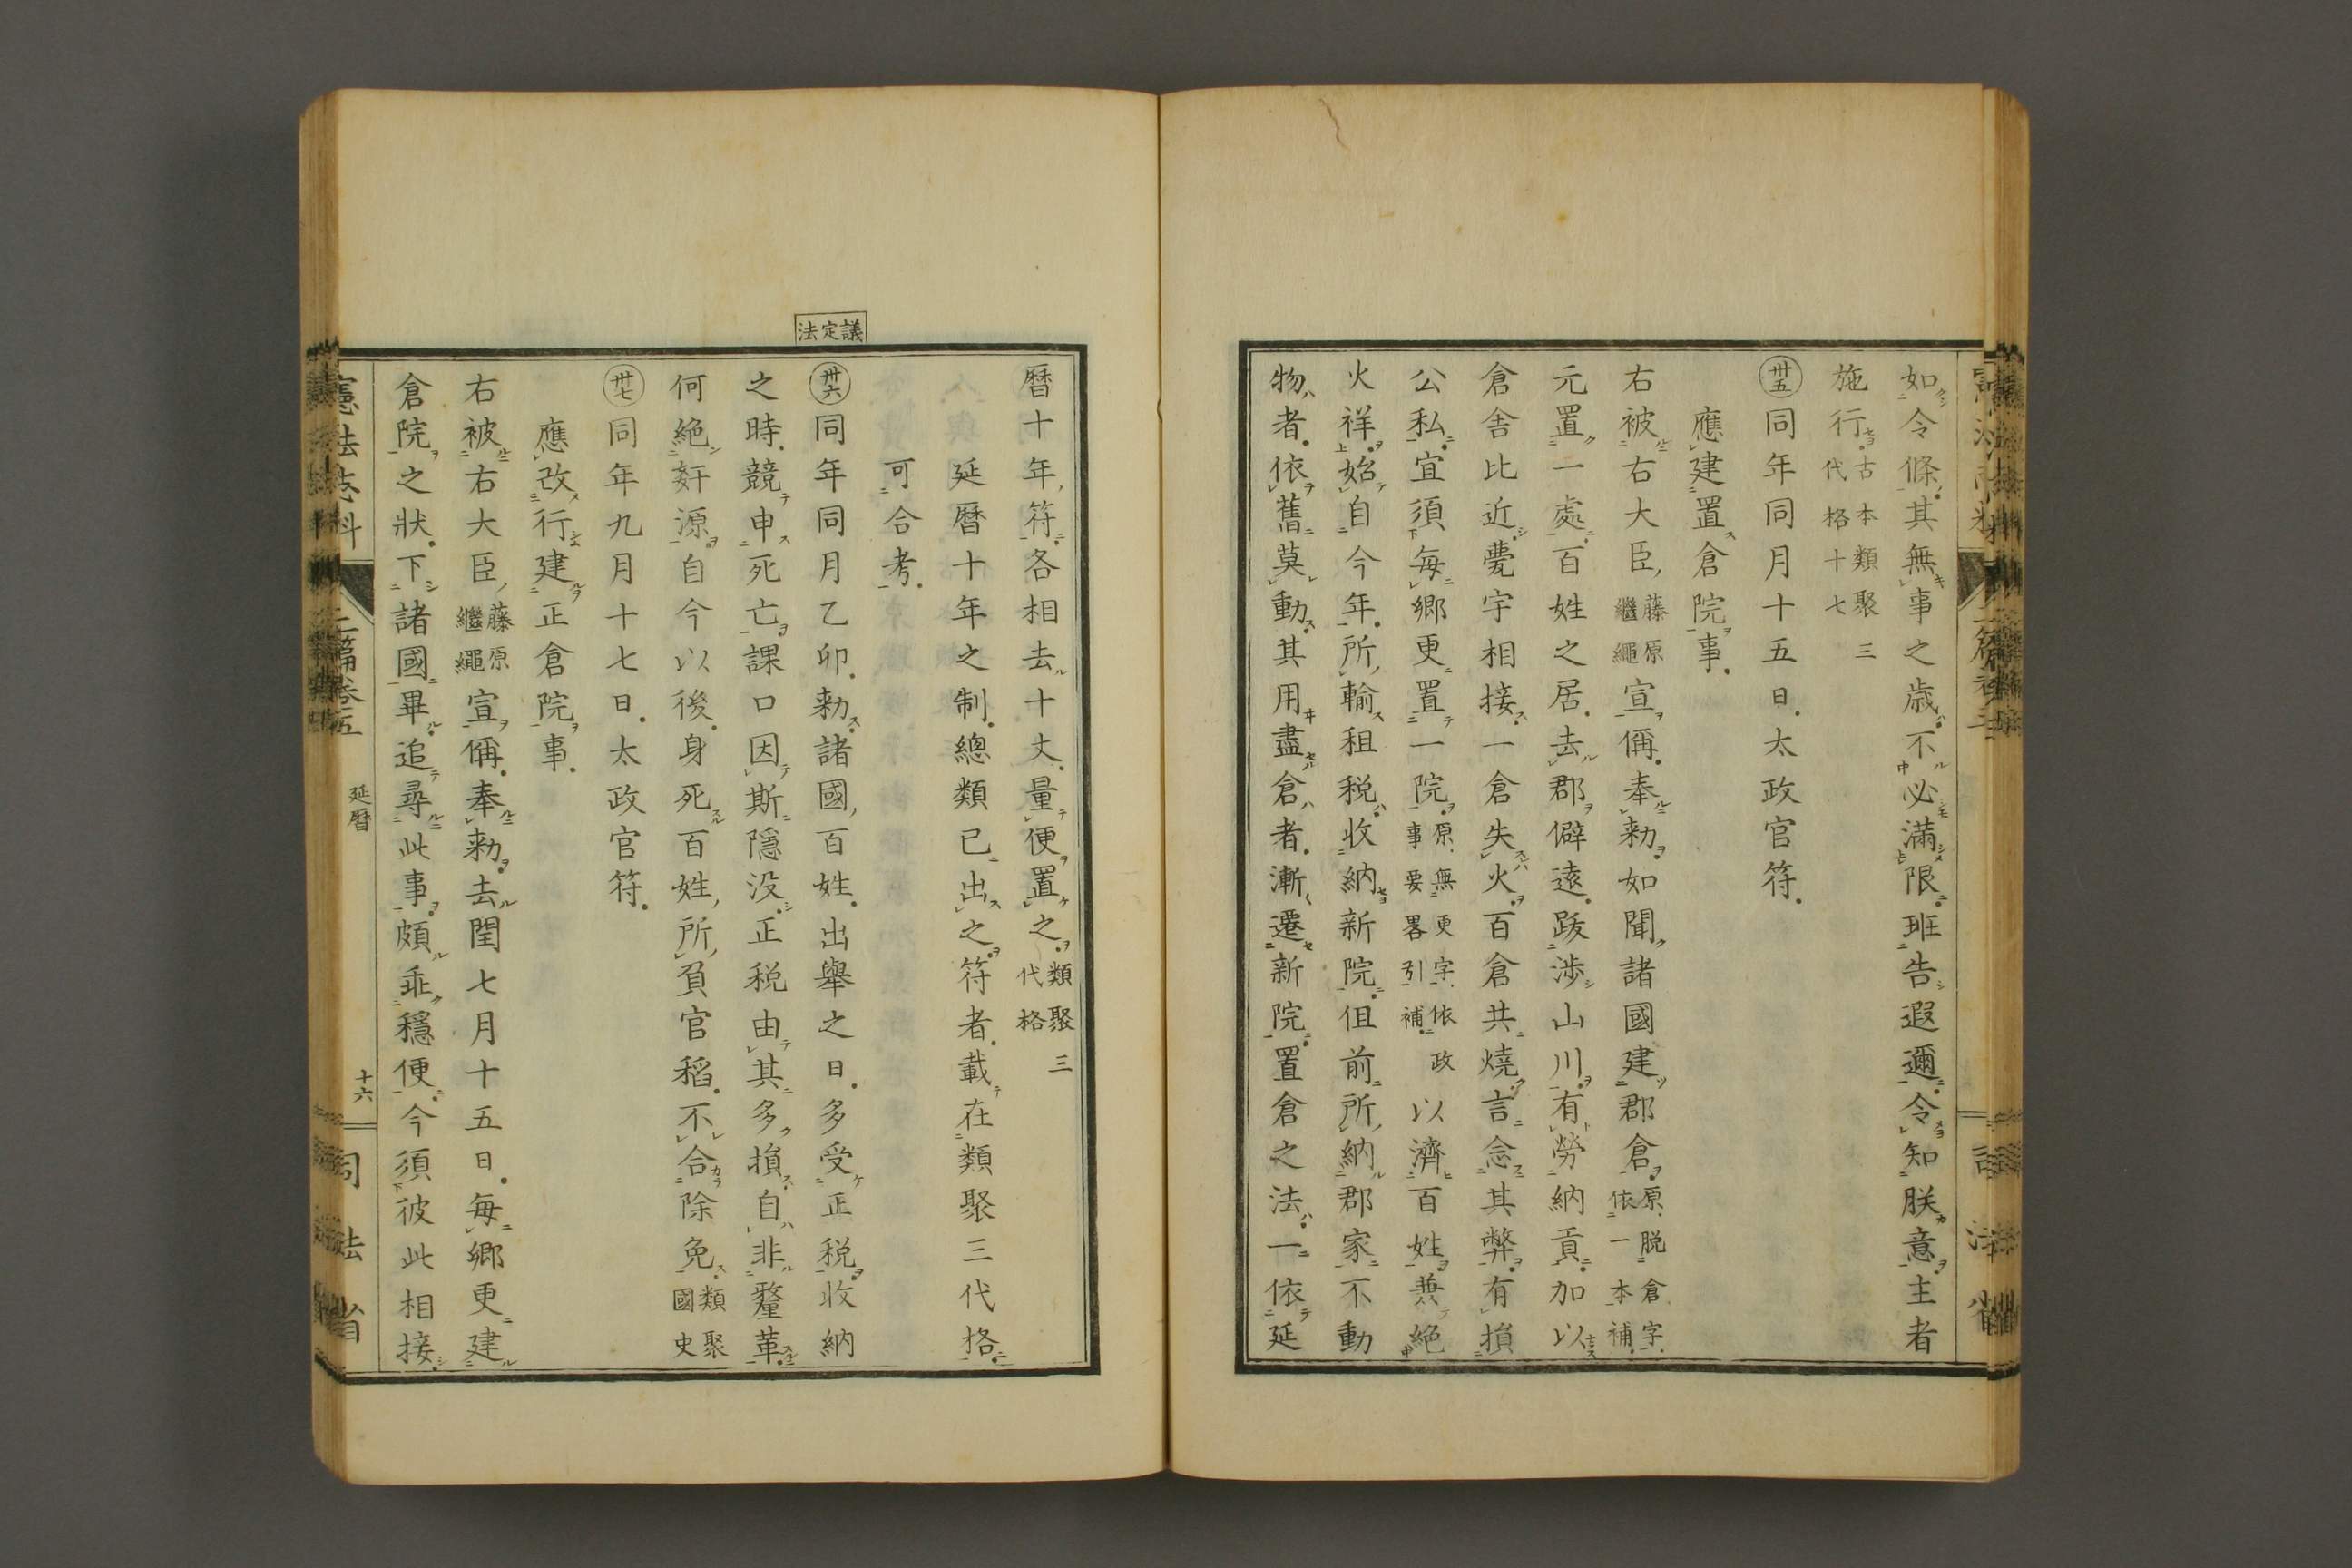 如令條其無事之歳不必滿限班告遐邇令知朕意主者
施行古本類聚三代格十七
卅五同年同月十五日太政官符
應建置倉院事
右被右大臣藤原繼繩宣偁奉勅如聞諸國建郡倉原脱倉字依一本補
元置一處百姓之居去郡僻遠跋渉山川有勞納貢加以
倉舎比近甍宇相接一倉失火百倉共燒言念其弊有損
公私宜須毎郷更置一院原無更字依政事要畧引補以濟百姓兼絶
火祥始自今年所輸租税收納新院但前所納郡家不動
物者依舊莫動其用盡倉者漸遷新院置倉之法一依延
暦十年符各相去十丈量便置之類聚三代格
延暦十年之制總類已出之符者載在類聚三代格
可合考
議定法
卅六同年同月乙卯勅諸國百姓出擧之日多受正税收納
之時競申死亡課口因斯隱没正税由其多損自非釐革
何絶奸源自今以後身死百姓所負官稻不合除免類聚國史
卅七同年九月十七日太政官符
應改行建正倉院事
右被右大臣藤原繼繩宣偁奉勅去閏七月十五日毎郷更建
倉院之狀下諸國畢追尋此事頗乖穩便今須彼此相接
憲法志料 二篇卷五 延暦 十六 司法省